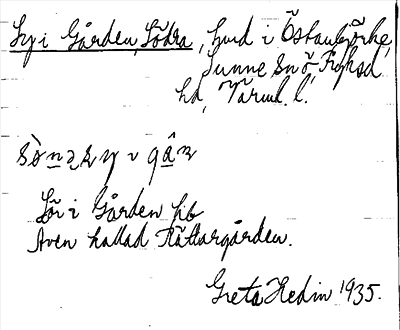 Sy i Gården, Södra, hmd i Östanbjörke,
Sunne sn ö, Fryksd
hd, Värml. l.
Sö i Gården hb
Även kallad Rättargården.
Greta Hedin 1935.